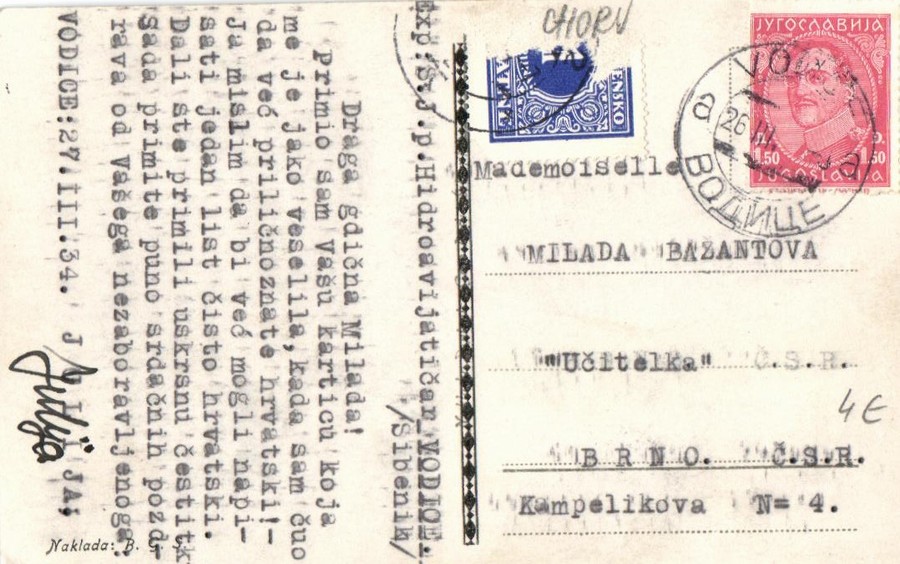 Draga gdična Milada!
Primio sam Vašu karticu koja
me je jako veselila, kada sam čuo
da već priličnoznate hrvatski!-
ja mislim da bi već mogli napi-
sati jedan list čisto hrvatski.
Dali ste primili uskrsnu čestitk
Sada primite puno srdačnih pozd-
rava od Vašega nezaboravljenoga,
VODICE:27.III.34. J
Julija
Exp:S.J.p.Hidroavijatičar VODICE.
/Šibenik/
Naklada: B.
CHORV
ЈУГОСЛАВИЈА
1.50
ВОДИЦЕ
Mademoiselle
MILADA BAZANTOVA
"Učitelka" Č.S.R.
BRNO. Č.S.R.
Kampelikova N= 4.
4€